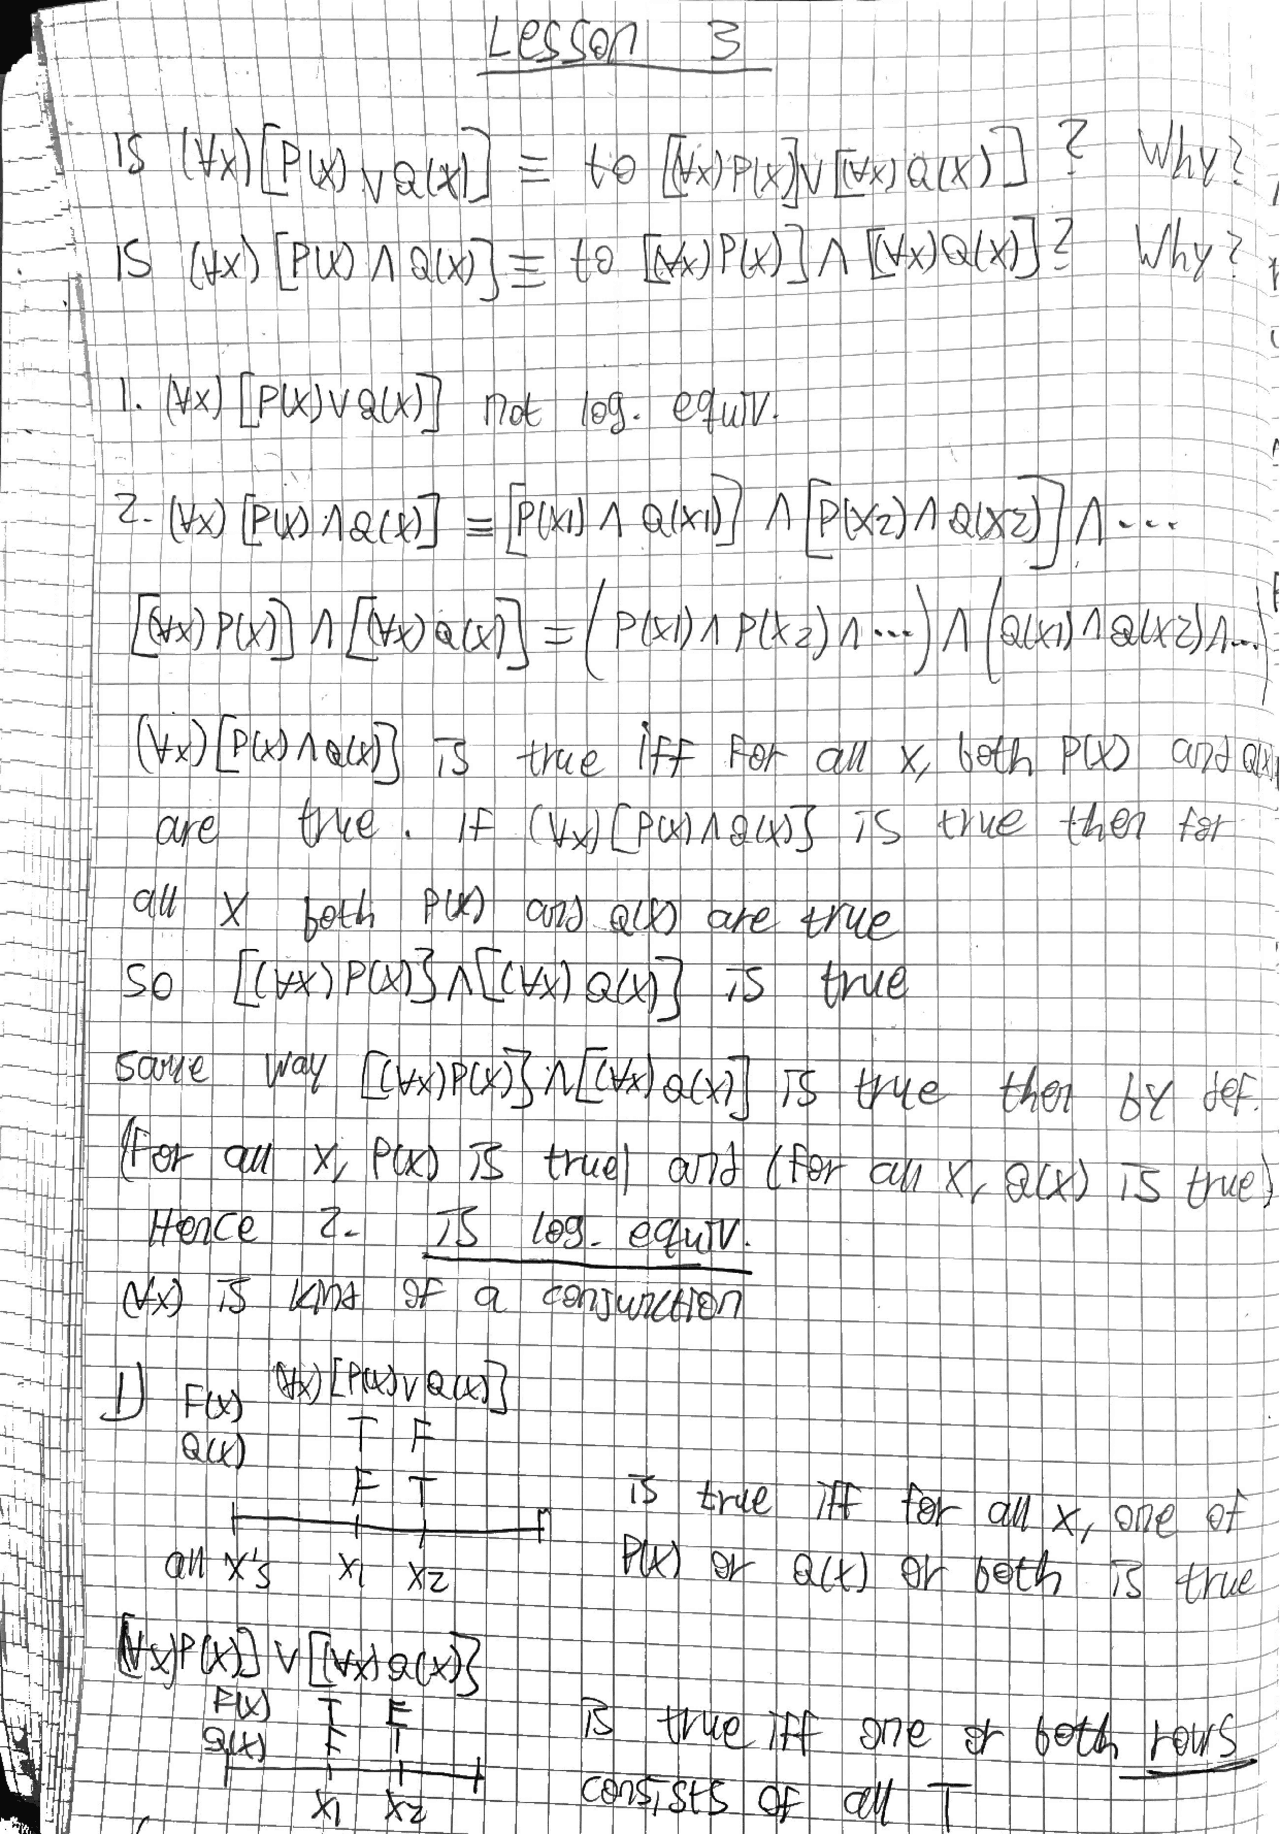 Lesson 3
Is (∀x)[P(x) ∨ Q(x)] ≡ to [(∀x)P(x)] ∨ [(∀x)Q(x)]? Why?
Is (∀x)[P(x) ∧ Q(x)] ≡ to [(∀x)P(x)] ∧ [(∀x)Q(x)]? Why?
1. (∀x)[P(x) ∨ Q(x)] not log. equiv.
2. (∀x)[P(x) ∧ Q(x)] ≡ [P(x1) ∧ Q(x1)] ∧ [P(x2) ∧ Q(x2)] ∧ ...
[(∀x)P(x)] ∧ [(∀x)Q(x)] = (P(x1) ∧ P(x2) ∧ ...) ∧ (Q(x1) ∧ Q(x2) ∧ ...)
(∀x)[P(x) ∧ Q(x)] is true iff for all x, both P(x) and Q(x)
are true. If (∀x)[P(x) ∧ Q(x)] is true then for
all x both P(x) and Q(x) are true
so [(∀x)P(x)] ∧ [(∀x)Q(x)] is true
same way [(∀x)P(x)] ∧ [(∀x)Q(x)] is true then by def.
(for all x, P(x) is true) and (for all x, Q(x) is true)
Hence 2. is log. equiv.
(∀x) is kind of a conjunction
1) (∀x)[P(x) ∨ Q(x)]
F(x) T F
Q(x) F T
is true iff for all x, one of
all x's x1 x2 P(x) or Q(x) or both is true
[(∀x)P(x)] ∨ [(∀x)Q(x)]
P(x) T F is true iff one or both rows
Q(x) F T
x1 x2 consists of all T